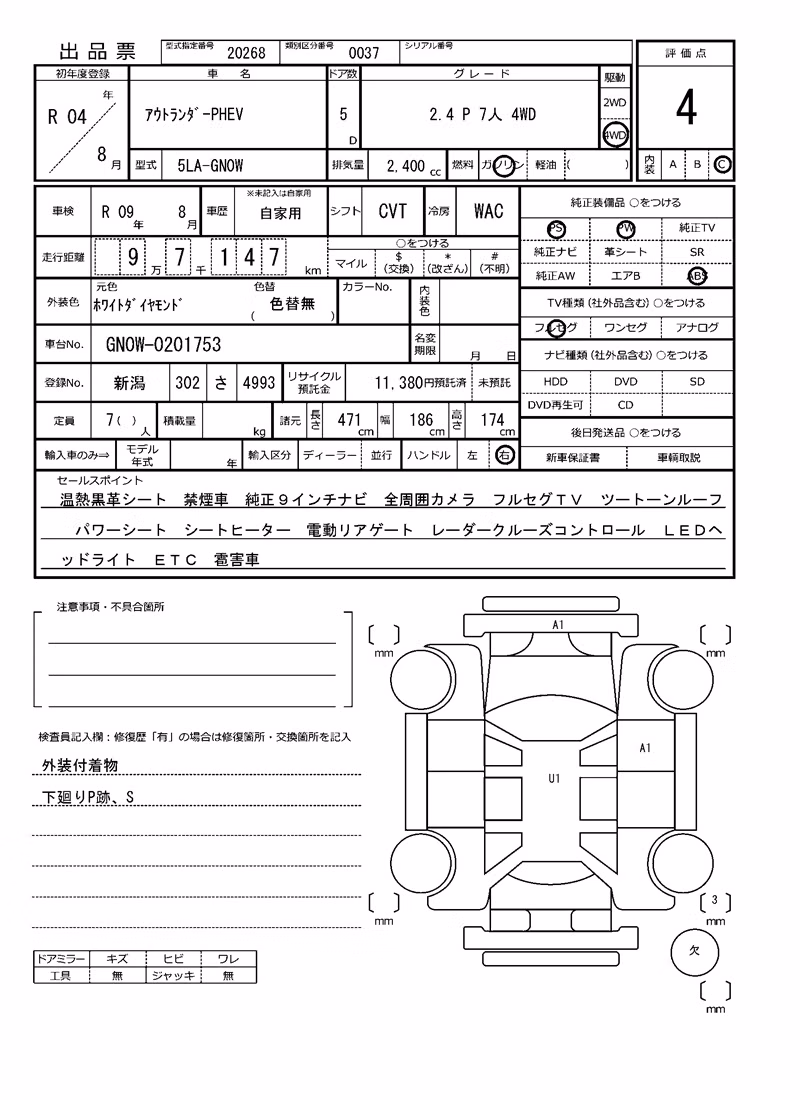 出品票 型式指定番号 20268 類別区分番号 0037 シリアル番号
評価点
4
内装 A B C
初年度登録 車名 ドア数 グレード 駆動
R 04 年 8 月 ｱｳﾄﾗﾝﾀﾞｰPHEV 5 D 2.4 P 7人 4WD 2WD 4WD
型式 5LA-GN0W 排気量 2,400 cc 燃料 ガソリン 軽油 ( )
車検 R 09 年 8 月 車歴 ※未記入は自家用 自家用 シフト CVT 冷房 WAC
走行距離 9 万 7 千 1 4 7 km ○をつける
マイル $(交換) *(改ざん) #(不明)
外装色 元色 ﾎﾜｲﾄﾀﾞｲﾔﾓﾝﾄﾞ 色替 ( 色替無 ) カラーNo. 内装色
車台No. GN0W-0201753 名変期限 月 日
登録No. 新潟 302 さ 4993 リサイクル預託金 11,380円預託済 未預託
定員 7( ) 人 積載量 kg 諸元 長さ 471 cm 幅 186 cm 高さ 174 cm
輸入車のみ⇒ モデル年式 年 輸入区分 ディーラー 並行 ハンドル 左 右
純正装備品 ○をつける
PS PW 純正TV
純正ナビ 革シート SR
純正AW エアB ABS
TV種類(社外品含む)○をつける
フルセグ ワンセグ アナログ
ナビ種類(社外品含む)○をつける
HDD DVD SD
DVD再生可 CD
後日発送品 ○をつける
新車保証書 車輌取説
セールスポイント
温熱黒革シート 禁煙車 純正９インチナビ 全周囲カメラ フルセグＴＶ ツートーンルーフ
パワーシート シートヒーター 電動リアゲート レーダークルーズコントロール ＬＥＤヘ
ッドライト ＥＴＣ 雹害車
注意事項・不具合箇所
検査員記入欄：修復歴「有」の場合は修復箇所・交換箇所を記入
外装付着物
下廻りP跡、S
ドアミラー キズ ヒビ ワレ
工具 無 ジャッキ 無
A1
mm mm
A1
U1
mm 3 mm
欠
mm